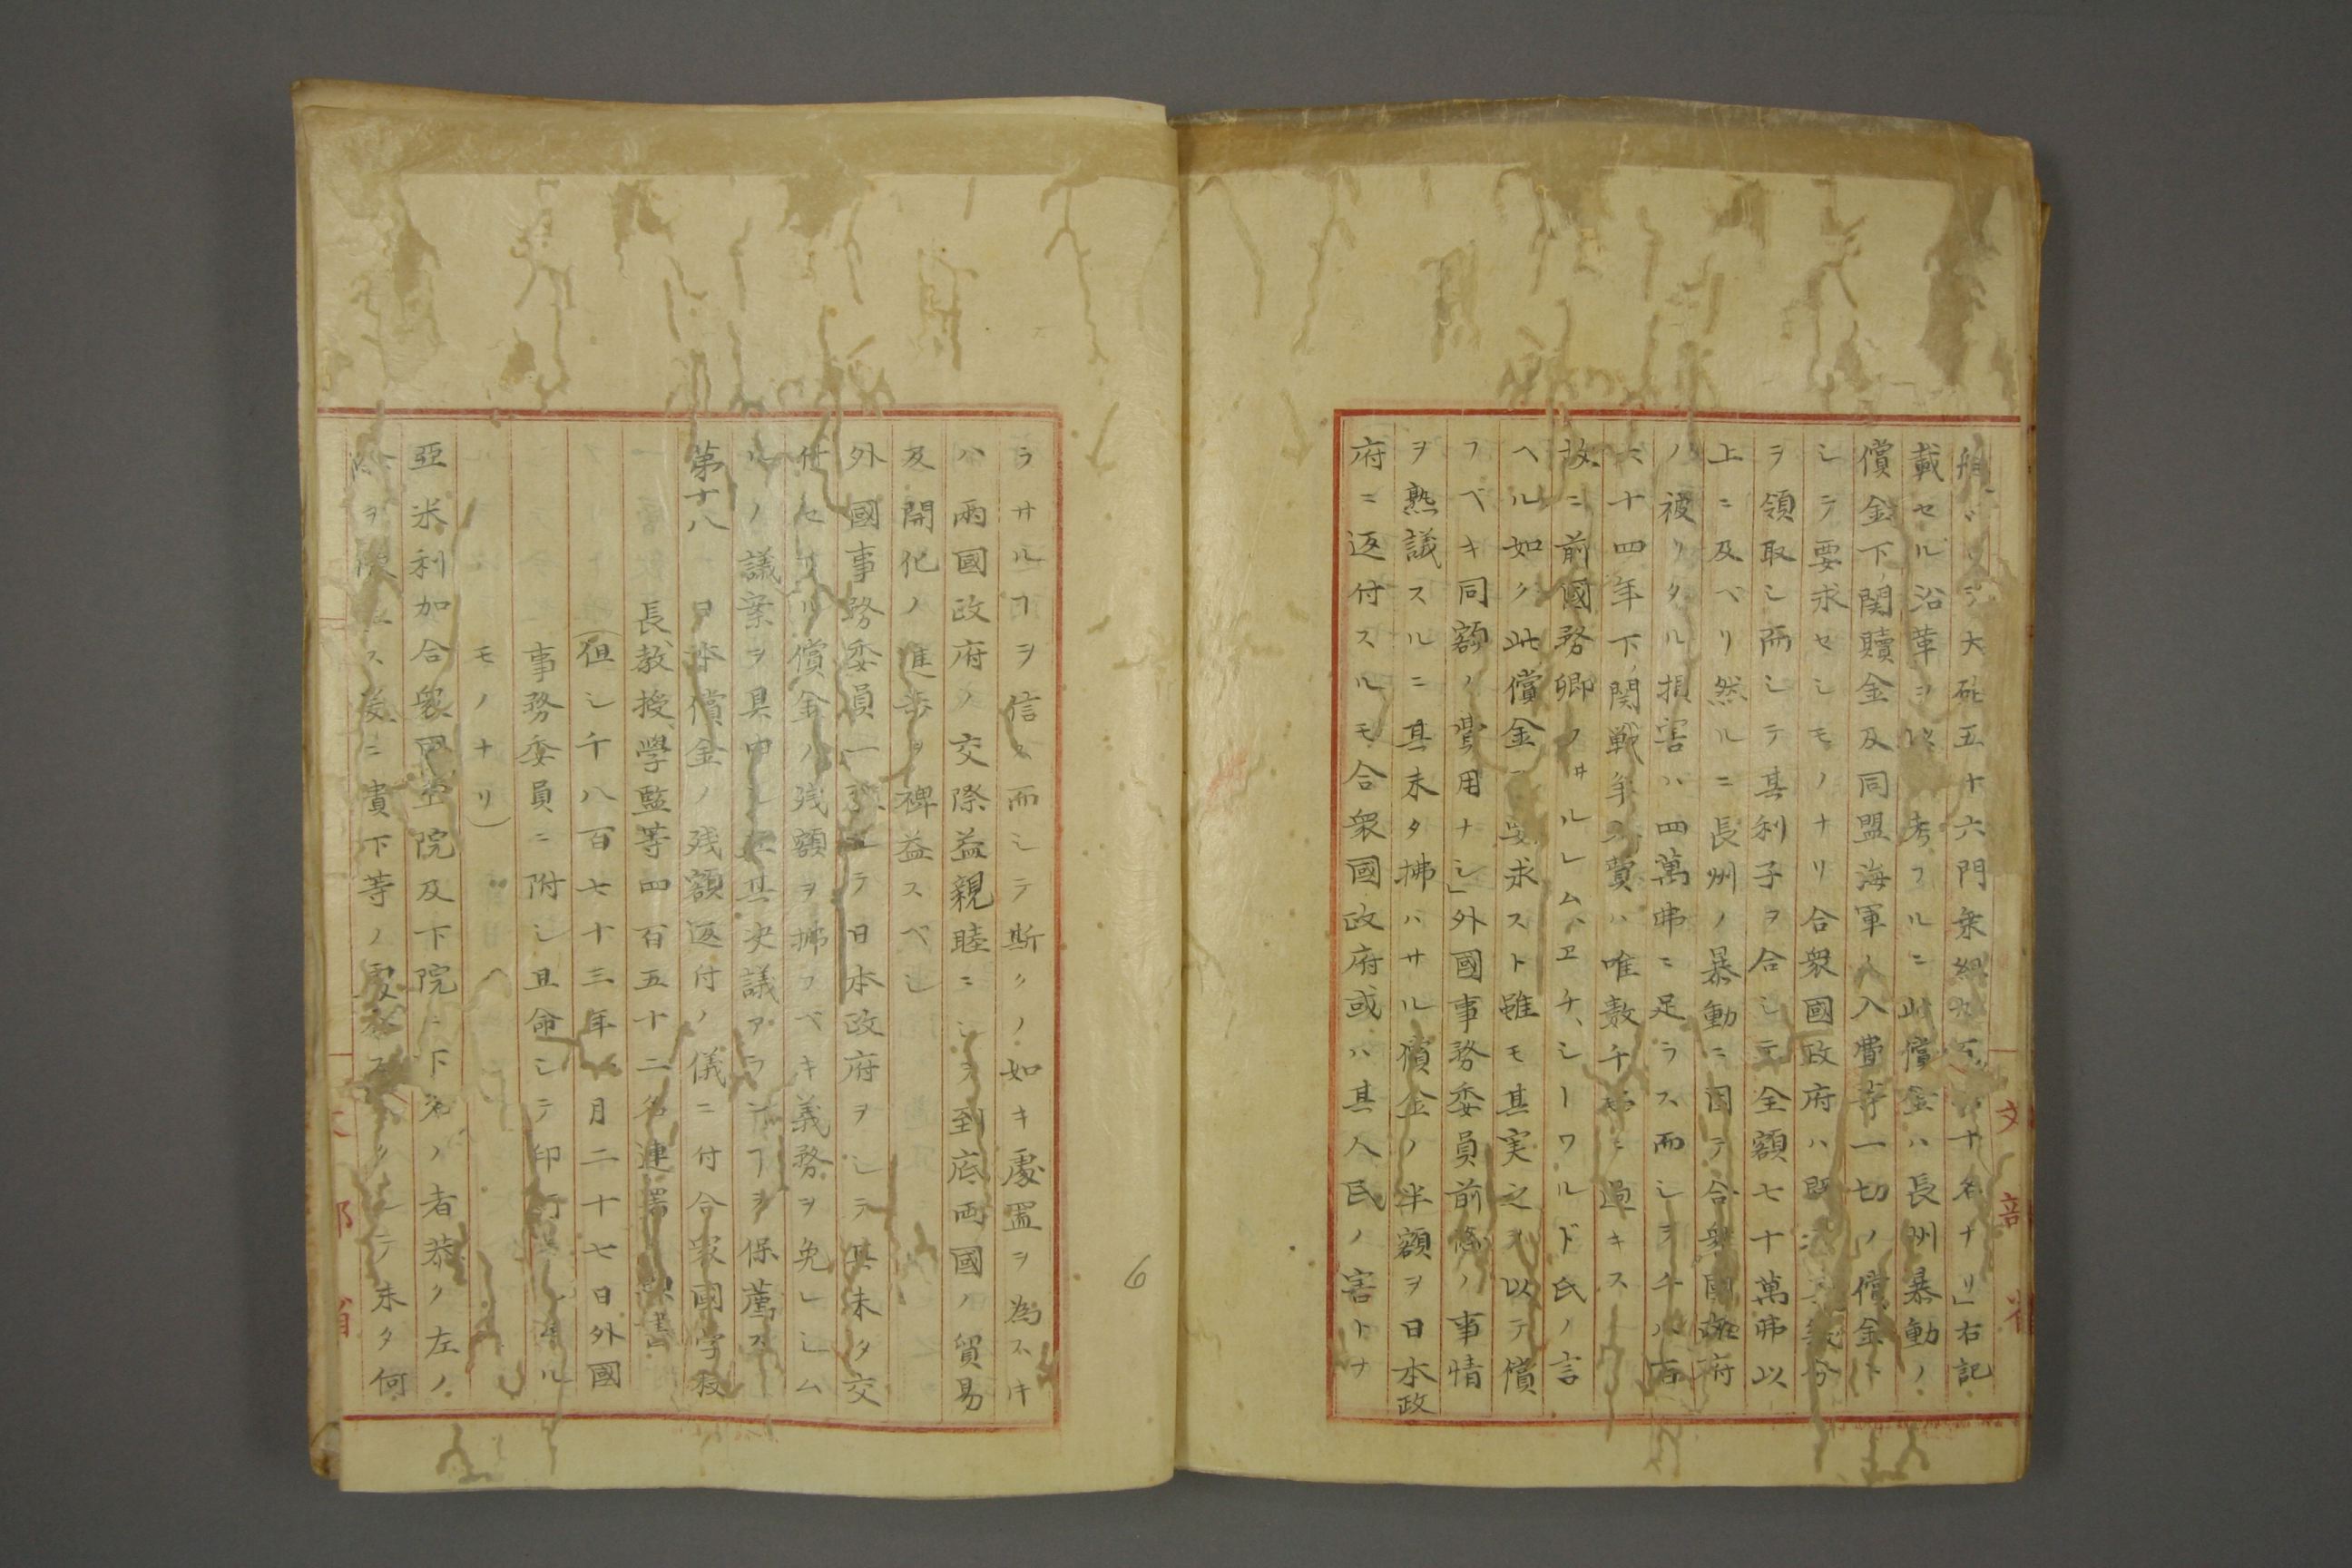 大砲五十六門乗組十名ナリ」右記
載セル沿革ヲ考フルニ此償金ハ長州暴動ノ
償金下ノ関贖金及同盟海軍ノ入費等一切ノ償金ト
シテ要求セシモノナリ合衆國政府ハ既ニ
ヲ領取シ而シテ其利子ヲ合シテ全額七十萬弗以
上ニ及ベリ然ルニ長州ノ暴動ニ因テ合衆國政府
ノ被リタル損害ハ四萬弗ニ足ラス而シテ千八百
六十四年下ノ関戦争ノ費ハ唯数千弗ニ過キス
故ニ前國務卿ノヰルレム、ヱチ、シーワルド氏ノ言
ヘル如ク此償金ヲ要求スト雖モ其実之ヲ以テ償
フベキ同額ノ費用ナシ」外國事務委員前條ノ事情
ヲ熟議スルニ其未タ拂ハサル償金ノ半額ヲ日本政
府ニ返付スルモ合衆國政府或ハ其人民ノ害トナ
文部省
ラサルヿヲ信ス而シテ斯クノ如キ處置ヲ為ストキ
ハ兩國政府ノ交際益親睦ニシテ到底両國ノ貿易
及開化ノ進歩ヲ裨益スベシ
外國事務委員一致シテ日本政府ヲシテ其未タ交
付セサリ償金ノ残額ヲ拂フベキ義務ヲ免レシム
ルノ議案ヲ具申シ其決議アランヿヲ保薦ス
第十八 日本償金ノ残額返付ノ儀ニ付合衆國学校
長教授學監等四百五十二名連署願書
(但シ千八百七十三年 月二十七日外國
事務委員ニ附シ且命シテ印行セシメタル
モノナリ)
亞米利加合衆國上院及下院ニ下名ノ者恭ク左ノ
ヲ陳述ス爰ニ貴下等ノ テ未タ何
6